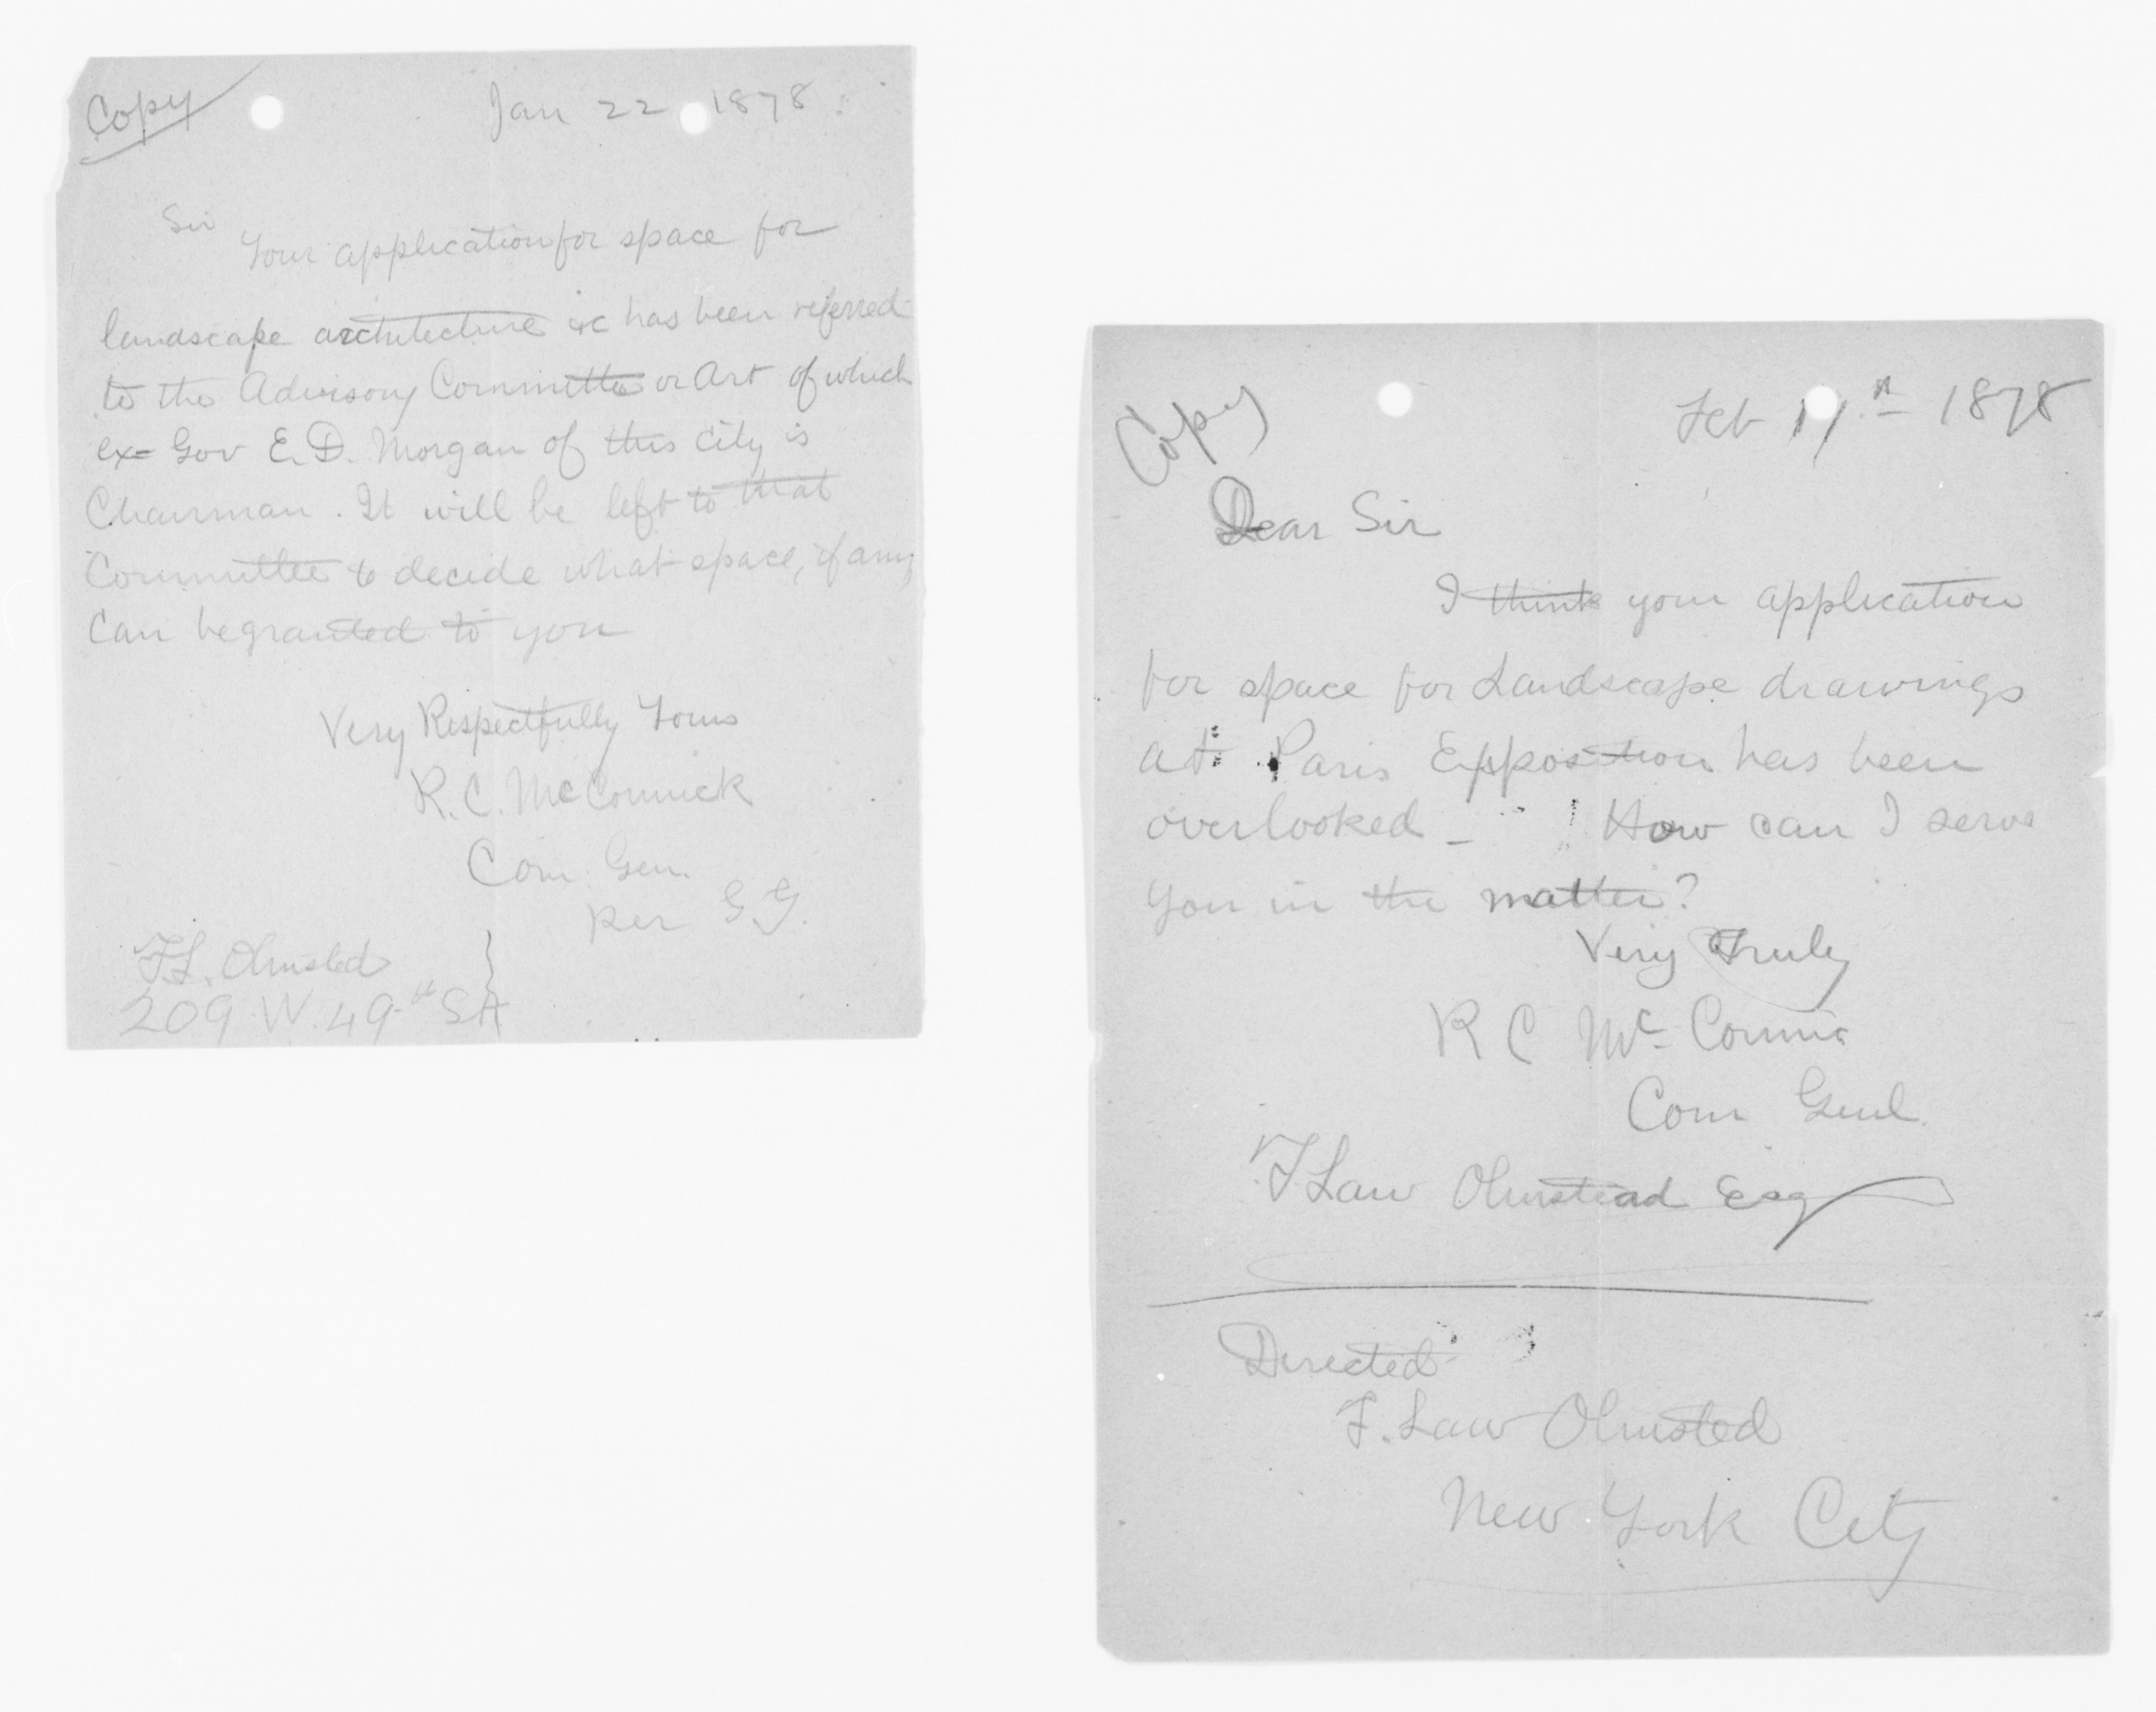 Copy
Jan 22 1878.
Sir
Your application for space for
landscape architecture &c has been referred
to the Advisory Committee on Art of which
ex= Gov E. D. Morgan of this City is
Chairman. It will be left to that
Committee to decide what space, if any,
can be granted to you
Very Respectfully Yours
R. C. McCormick
Com. Gen.
per G.G.
F L. Olmsted
209 W. 49th St
Copy
Feb 1878
Dear Sir
I think your application
for space for Landscape drawings
at Paris has been
overlooked _ How can I serve
you in the matter?
Very Truly
R C Mc Cormic
Com Genl.
F Law Olmstead Esq
Directed
F. Law Olmsted
New York City